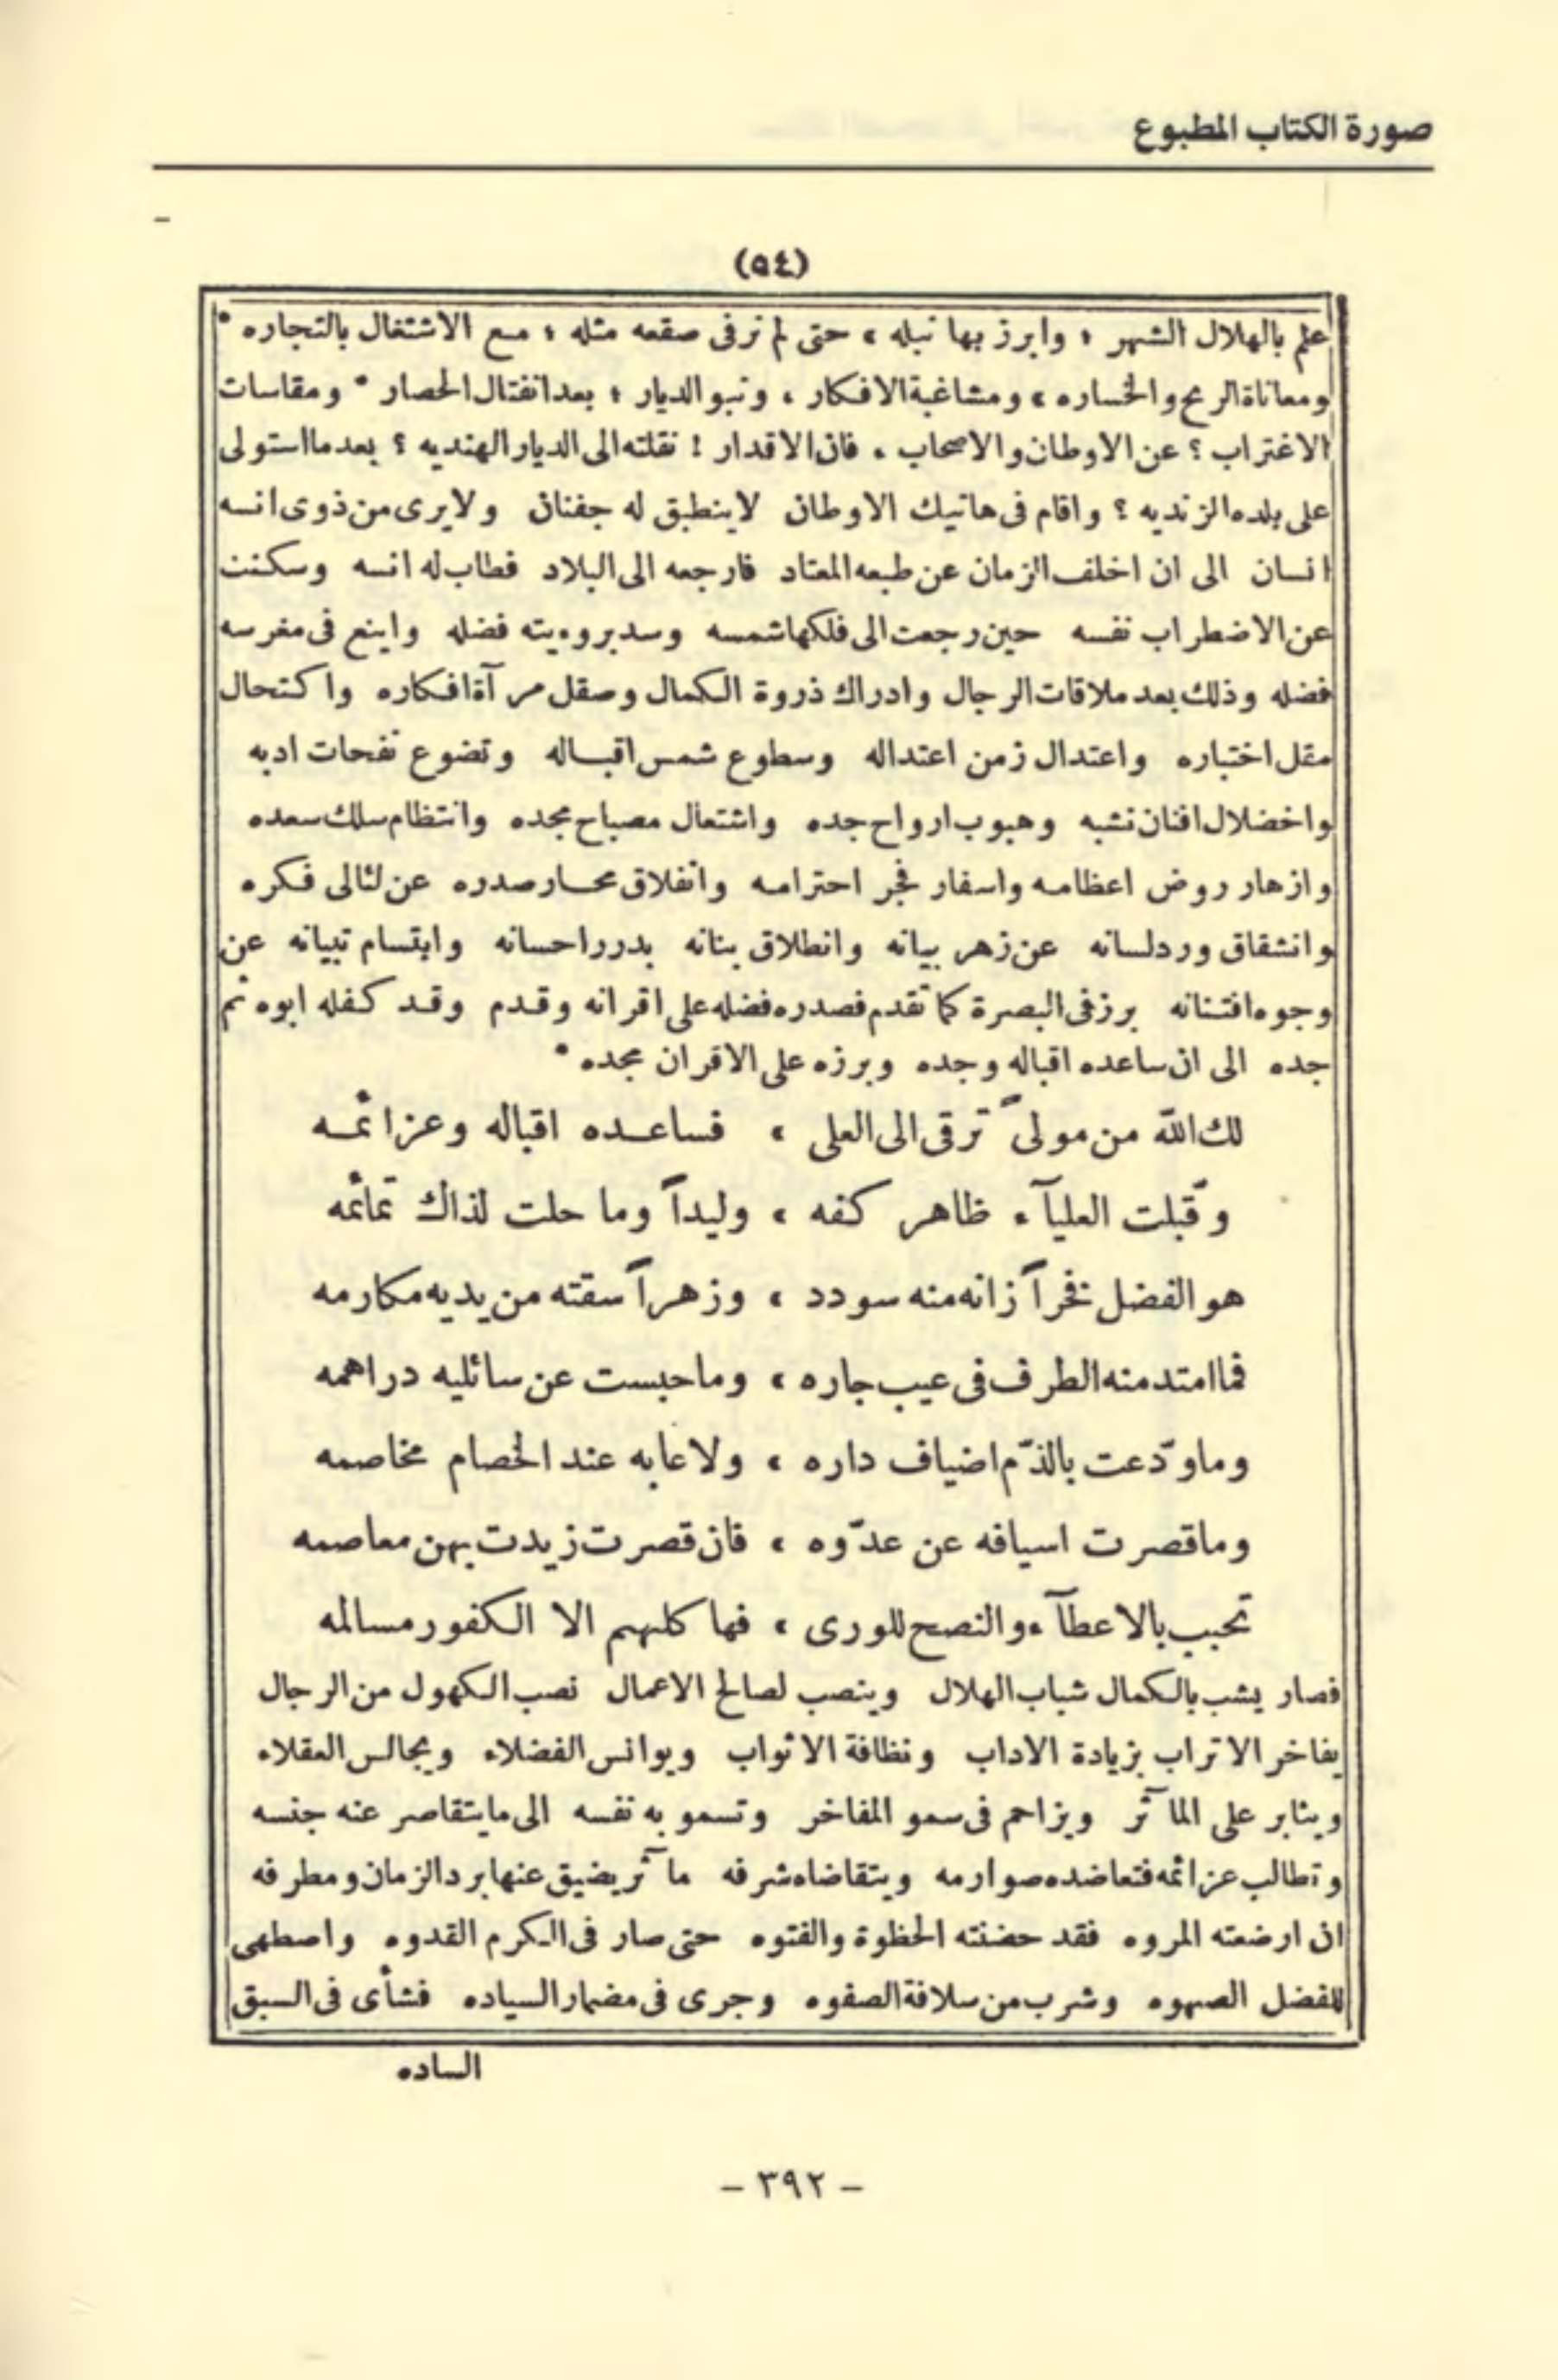 صورة الكتاب المطبوع
(٥٤)
علم بالهلال الشهر ؛ وابرز بها نبله ، حتى لم نرفى صقعه مثله ؛ مع الاشتغال بالتجاره *
ومعاناة الربح والخساره ، ومشاغبة الافكار ، ونبو الديار ؛ بعد انفتال الحصار * ومقاسات
الاغتراب ؟ عن الاوطان والاصحاب ، فان الاقدار ! نقلته الى الديار الهنديه ؟ بعدما استولى
على بلده الزنديه ؟ واقام فى هاتيك الاوطان لا ينطبق له جفنان ولا يرى من ذوى انسه
انسان الى ان اخلف الزمان عن طبعه المعتاد فارجعه الى البلاد فطاب له انسه وسكنت
عن الاضطراب نفسه حين رجعت الى فلكها شمسه وسد بروءيته فضله واينع فى مغرسه
فضله وذلك بعد ملاقات الرجال وادراك ذروة الكمال وصقل مرآة افكاره واكتحال
مقل اختباره واعتدال زمن اعتداله وسطوع شمس اقباله وتضوع نفحات ادبه
واخضلال افنان نشبه وهبوب ارواح جده واشتعال مصباح مجده وانتظام سلك سعده
وازهار روض اعظامه واسفار فجر احترامه وانفلاق محار صدره عن لئالى فكره
وانشقاق ورد لسانه عن زهر بيانه وانطلاق بنانه بدرر احسانه وابتسام تبيانه عن
وجوه افتنانه برز فى البصرة كما تقدم فصدره فضله على اقرانه وقدم وقد كفله ابوه ثم
جده الى ان ساعده اقباله وجده وبرزه على الاقران مجده *
لك الله من مولىً ترقى الى العلى ، فساعده اقباله وعزائمه
وقّبلت العليآء ظاهر كفه ، وليداً وما حلت لذاك تمائمه
هو الفضل فخراً زانه منه سودد ، وزهراً سقته من يديه مكارمه
فما امتد منه الطرف فى عيب جاره ، وما حبست عن سائليه دراهمه
وما ودّعت بالذّم اضياف داره ، ولا عابه عند الخصام مخاصمه
وما قصرت اسيافه عن عدّوه ، فان قصرت زيدت بهن معاصمه
تحبب بالاعطآء والنصح للورى ، فها كلهم الا الكفور مسالمه
فصار يشب بالكمال شباب الهلال وينصب لصالح الاعمال نصب الكهول من الرجال
يفاخر الاتراب بزيادة الاداب ونظافة الاثواب ويوانس الفضلاء ويجالس العقلاء
ويثابر على المآثر ويزاحم فى سمو المفاخر وتسمو به نفسه الى ما يتقاصر عنه جنسه
وتطالب عزائمه فتعاضده صوارمه ويتقاضاه شرفه مآثر يضيق عنها برد الزمان ومطرفه
ان ارضعته المروه فقد حضنته الحظوة والفتوه حتى صار فى الكرم القدوه واصطهى
للفضل الصهوه وشرب من سلافة الصفوه وجرى فى مضمار السياده فشأى فى السبق
الساده
- ٣٩٢ -